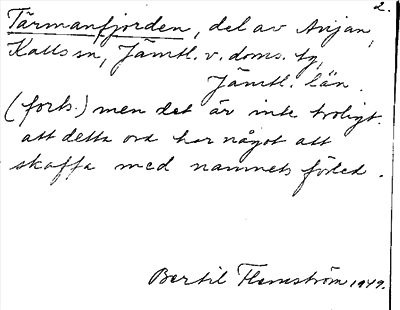 2.
Tärmanfjorden, del av Anjan,
Kalls sn, Jämtl. v. doms. tg,
Jämtl. län.
(forts.) men det är inte troligt.
att detta ord har något att
skaffa med namnets förled.
Bertil Flemström 1949.